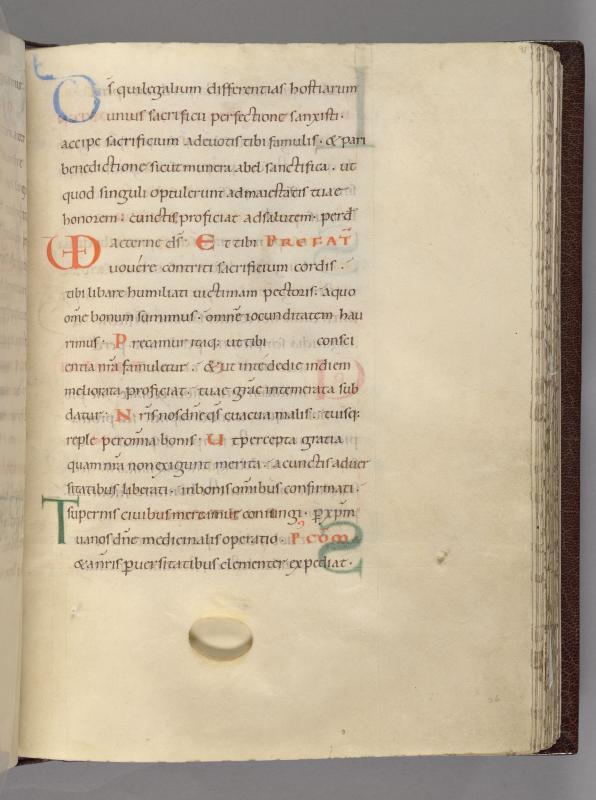 Dš qui legalium differentias hostiarum
unius sacrificii perfectione sanxisti·
accipe sacrificium a devotis tibi famulis· & pari
benedictione sicut munera abel sanctifica· ut
quod singuli optulerunt ad maiestatis tuae
honorem· cunctis proficiat ad salutem· per d̄
VD aeterne d̄s· Et tibi PREFAT̄
vovére contriti sacrificium cordis·
tibi libare humiliati victimam pectoris· a quo
om̄e bonum sumimus· omnē iocunditatem hau
rimus· Precamur itaq; ut tibi consci
entia nr̄a famuletur· & ut in te de die in diem
meliorata proficiat· tuae grāe intemerata sub
datur· Nr̄is nos dn̄e qs̄ evacua malis· tuisq:
reple per om̄ia bonis· Ut percepta gratia
quam nr̄a non exigunt merita· a cunctis adver
sitatibus liberati· in bonis om̄ibus confirmati·
supernis civibus mereamur coniungi· ꝑ xp̄m
Tua nos dn̄e medicinalis operatio· P. COM̄
& a nr̄is ꝑversitatibus clementer expediat·